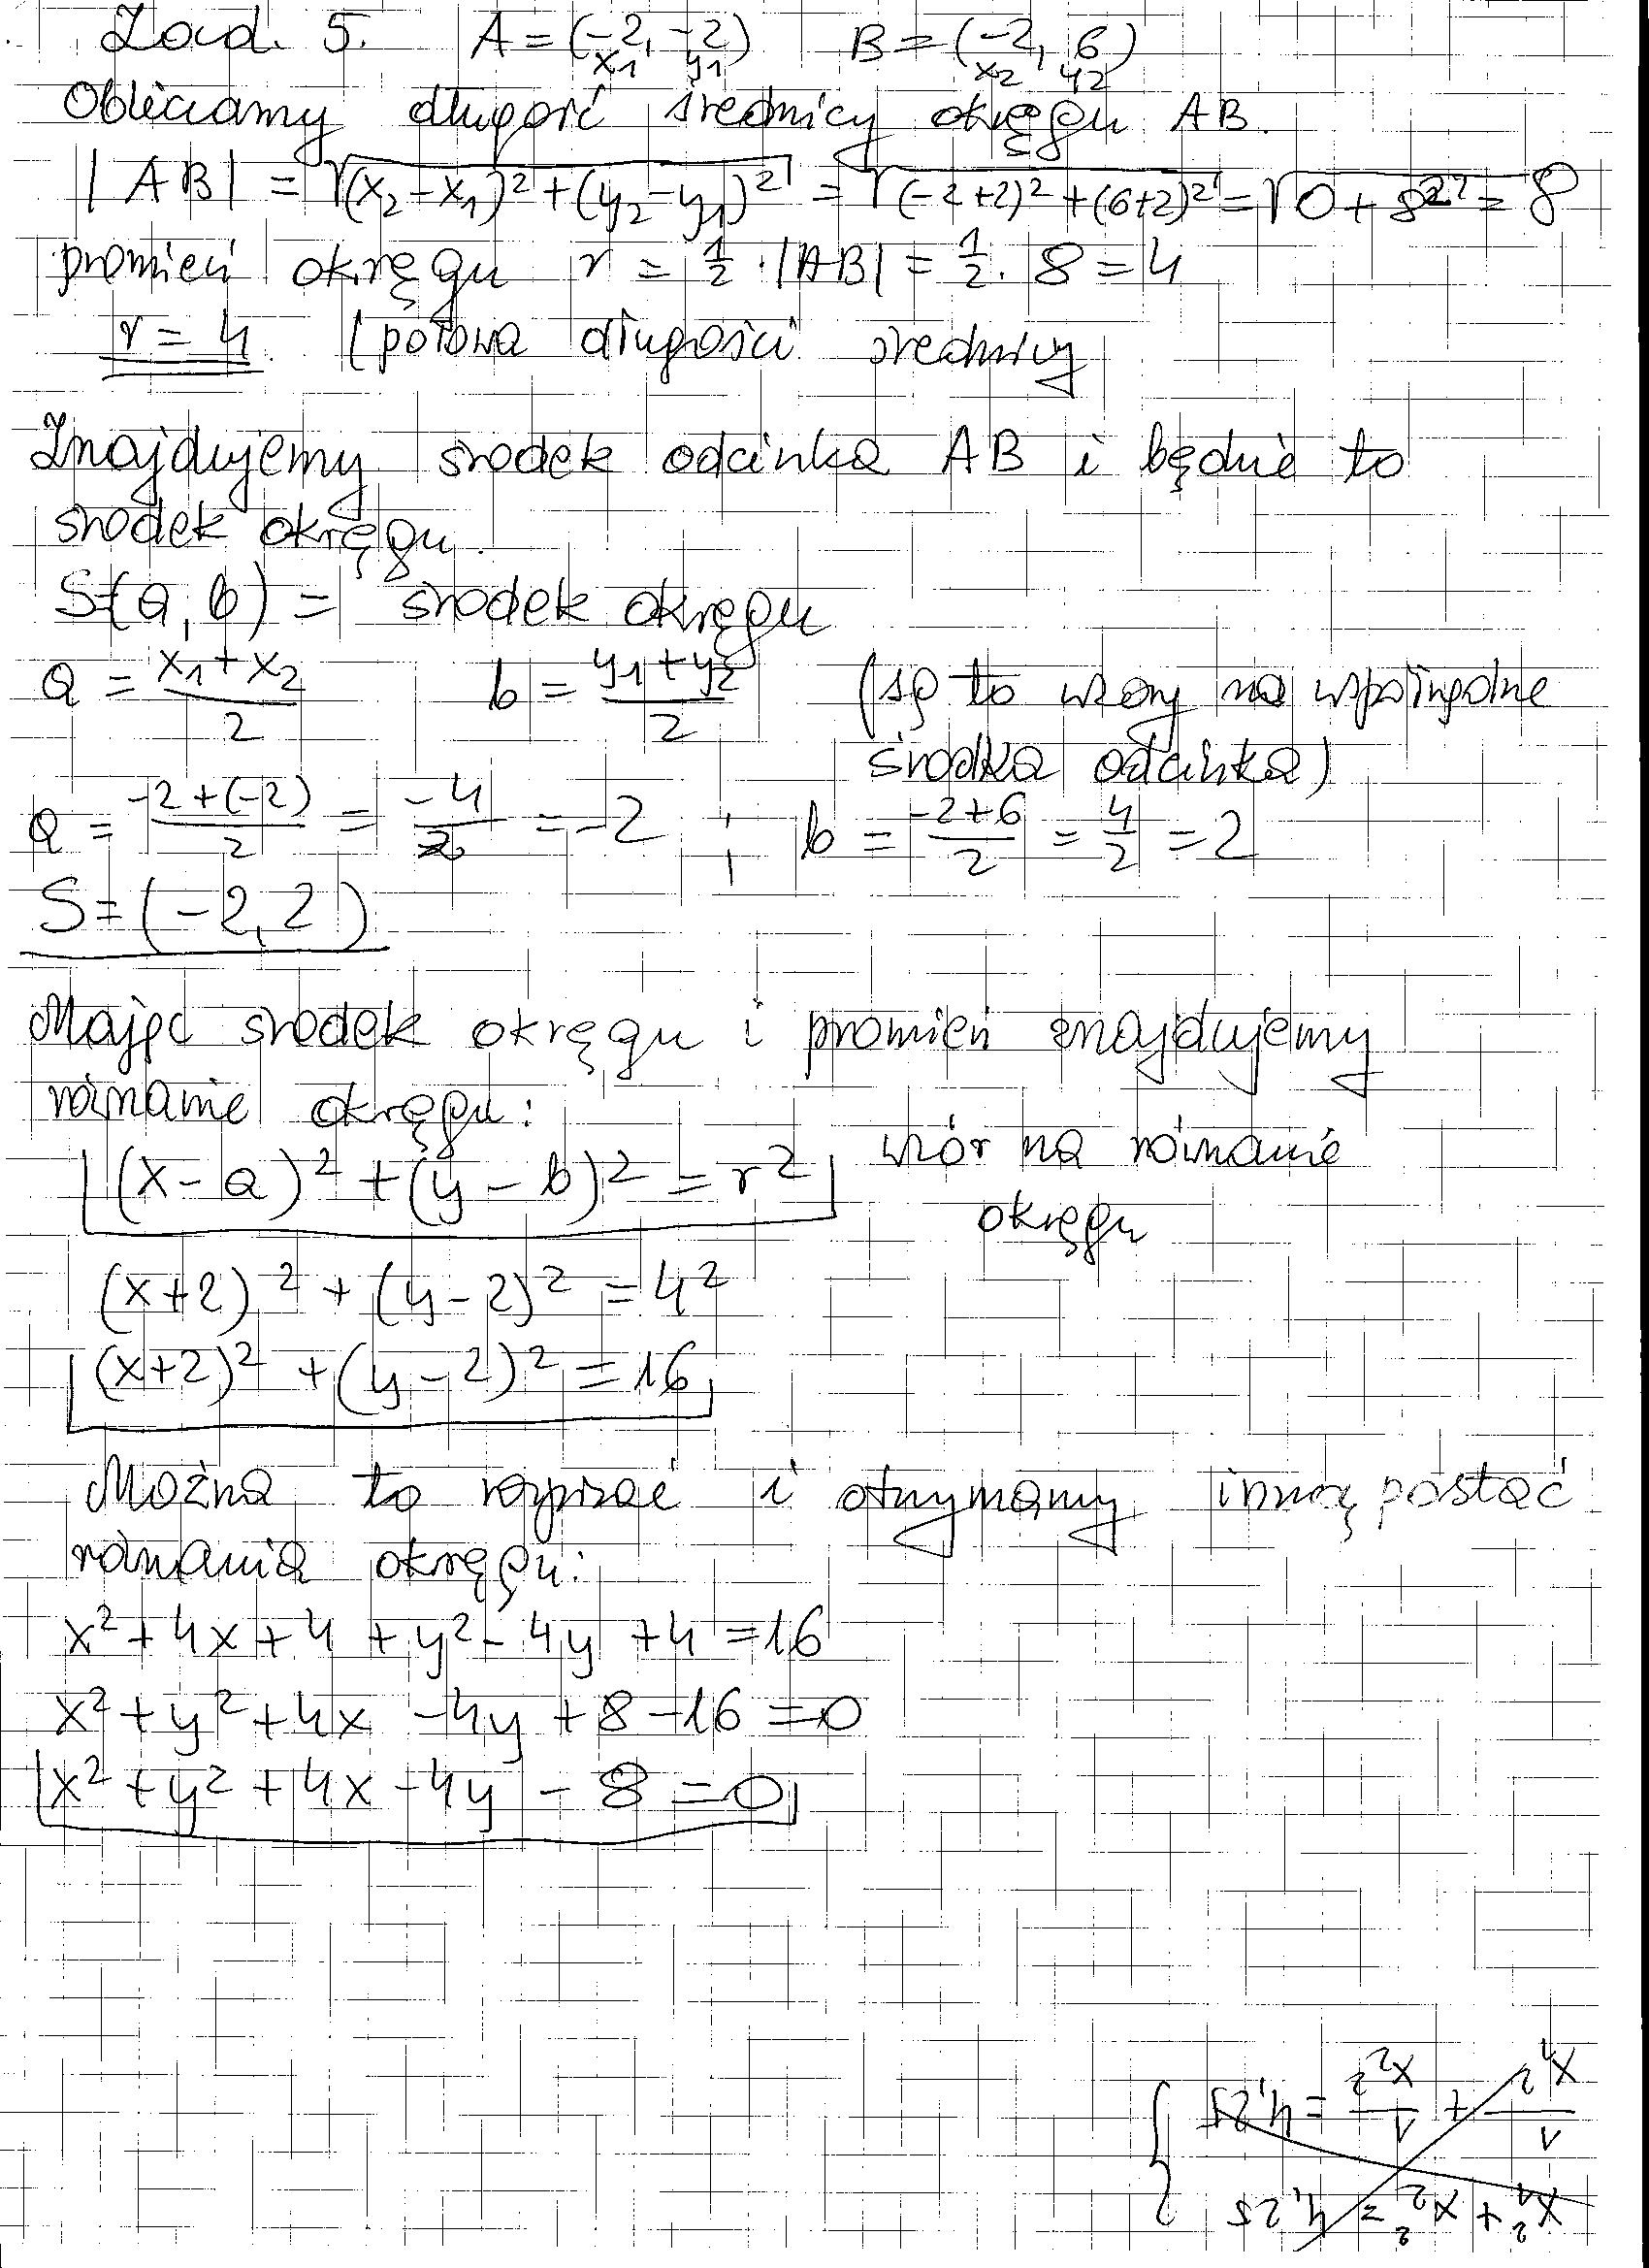 Zad. 5. A = (-2, -2) B = (-2, 6)
x₁ y₁ x₂ y₂
Obliczamy długość średnicy okręgu AB.
|AB| = √((x₂-x₁)² + (y₂-y₁)²) = √((-2+2)² + (6+2)²) = √(0+8²) = 8
promień okręgu r = 1/2 · |AB| = 1/2 · 8 = 4
r = 4 (połowa długości średnicy
Znajdujemy środek odcinka AB i będzie to
środek okręgu.
S=(a, b) = środek okręgu
a = (x₁+x₂)/2 b = (y₁+y₂)/2 (są to wzory na współrzędne
środka odcinka)
a = (-2+(-2))/2 = -4/2 = -2 ; b = (-2+6)/2 = 4/2 = 2
S = (-2, 2)
Mając środek okręgu i promień znajdujemy
równanie okręgu:
(x-a)² + (y-b)² = r² wzór na równanie
okręgu
(x+2)² + (y-2)² = 4²
(x+2)² + (y-2)² = 16
Można to rozpisać i otrzymamy inną postać
równania okręgu:
x² + 4x + 4 + y² - 4y + 4 = 16
x² + y² + 4x - 4y + 8 - 16 = 0
x² + y² + 4x - 4y - 8 = 0
x₁² + x₂² = 4,25
1/x₁² + 1/x₂² = 4,25